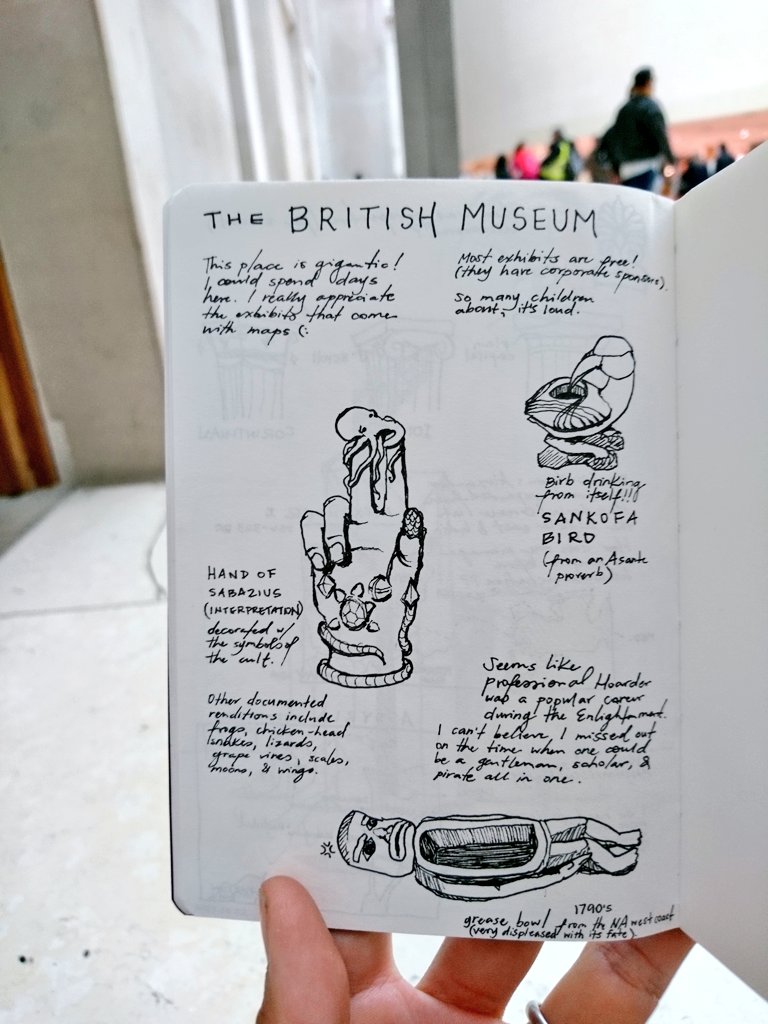 THE BRITISH MUSEUM
This place is gigantic!
I could spend days
here. I really appreciate
the exhibits that come
with maps (:
Most exhibits are free!
(they have corporate sponsors).
So many children
about, it's loud.
Birb drinking
from itself!!!
SANKOFA
BIRD
(from an Asante
proverb)
HAND OF
SABAZIUS
(INTERPRETATION)
decorated w/
the symbols of
the cult.
Other documented
renditions include
frogs, chicken-head
snakes, lizards,
grape vines, scales,
moons, & wings.
Seems like
professional Hoarder
was a popular career
during the Enlightenment.
I can't believe, I missed out
on the time when one could
be a gentleman, scholar, &
pirate all in one.
1790's
grease bowl from the NA west coast
(very displeased with its fate).